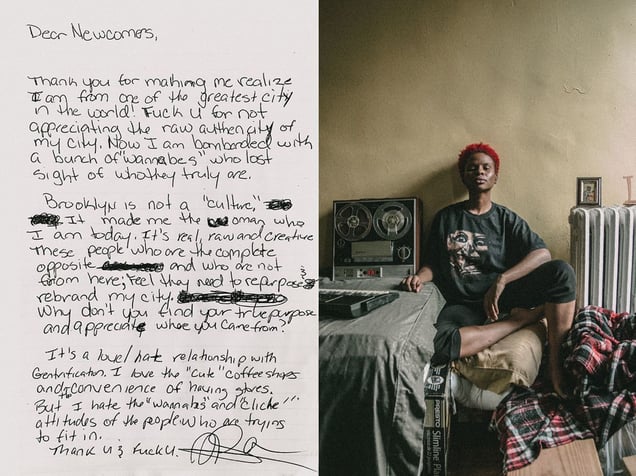 Dear Newcomers,
Thank you for making me realize
I am from one of the greatest city
in the world! Fuck u for not
appreciating the raw authencity of
my city. Now I am bombarded with
a bunch of "wannabes" who lost
sight of who they truly are.
Brooklyn is not a "culture,"
It made me the woman who
I am today. It's real, raw and creative
These people who are the complete
opposite and who are not
from here; feel they need to repurpose &
rebrand my city.
Why don't you find your true purpose
and appreciate where you came from?
It's a love/hate relationship with
Gentrification. I love the "cute" coffee shops
and the convenience of having stores.
But I hate the "wannabes" and "cliche"
attitudes of the people who are trying
to fit in.
Thank u & Fuck U.
PRESTO
Slimline Pl